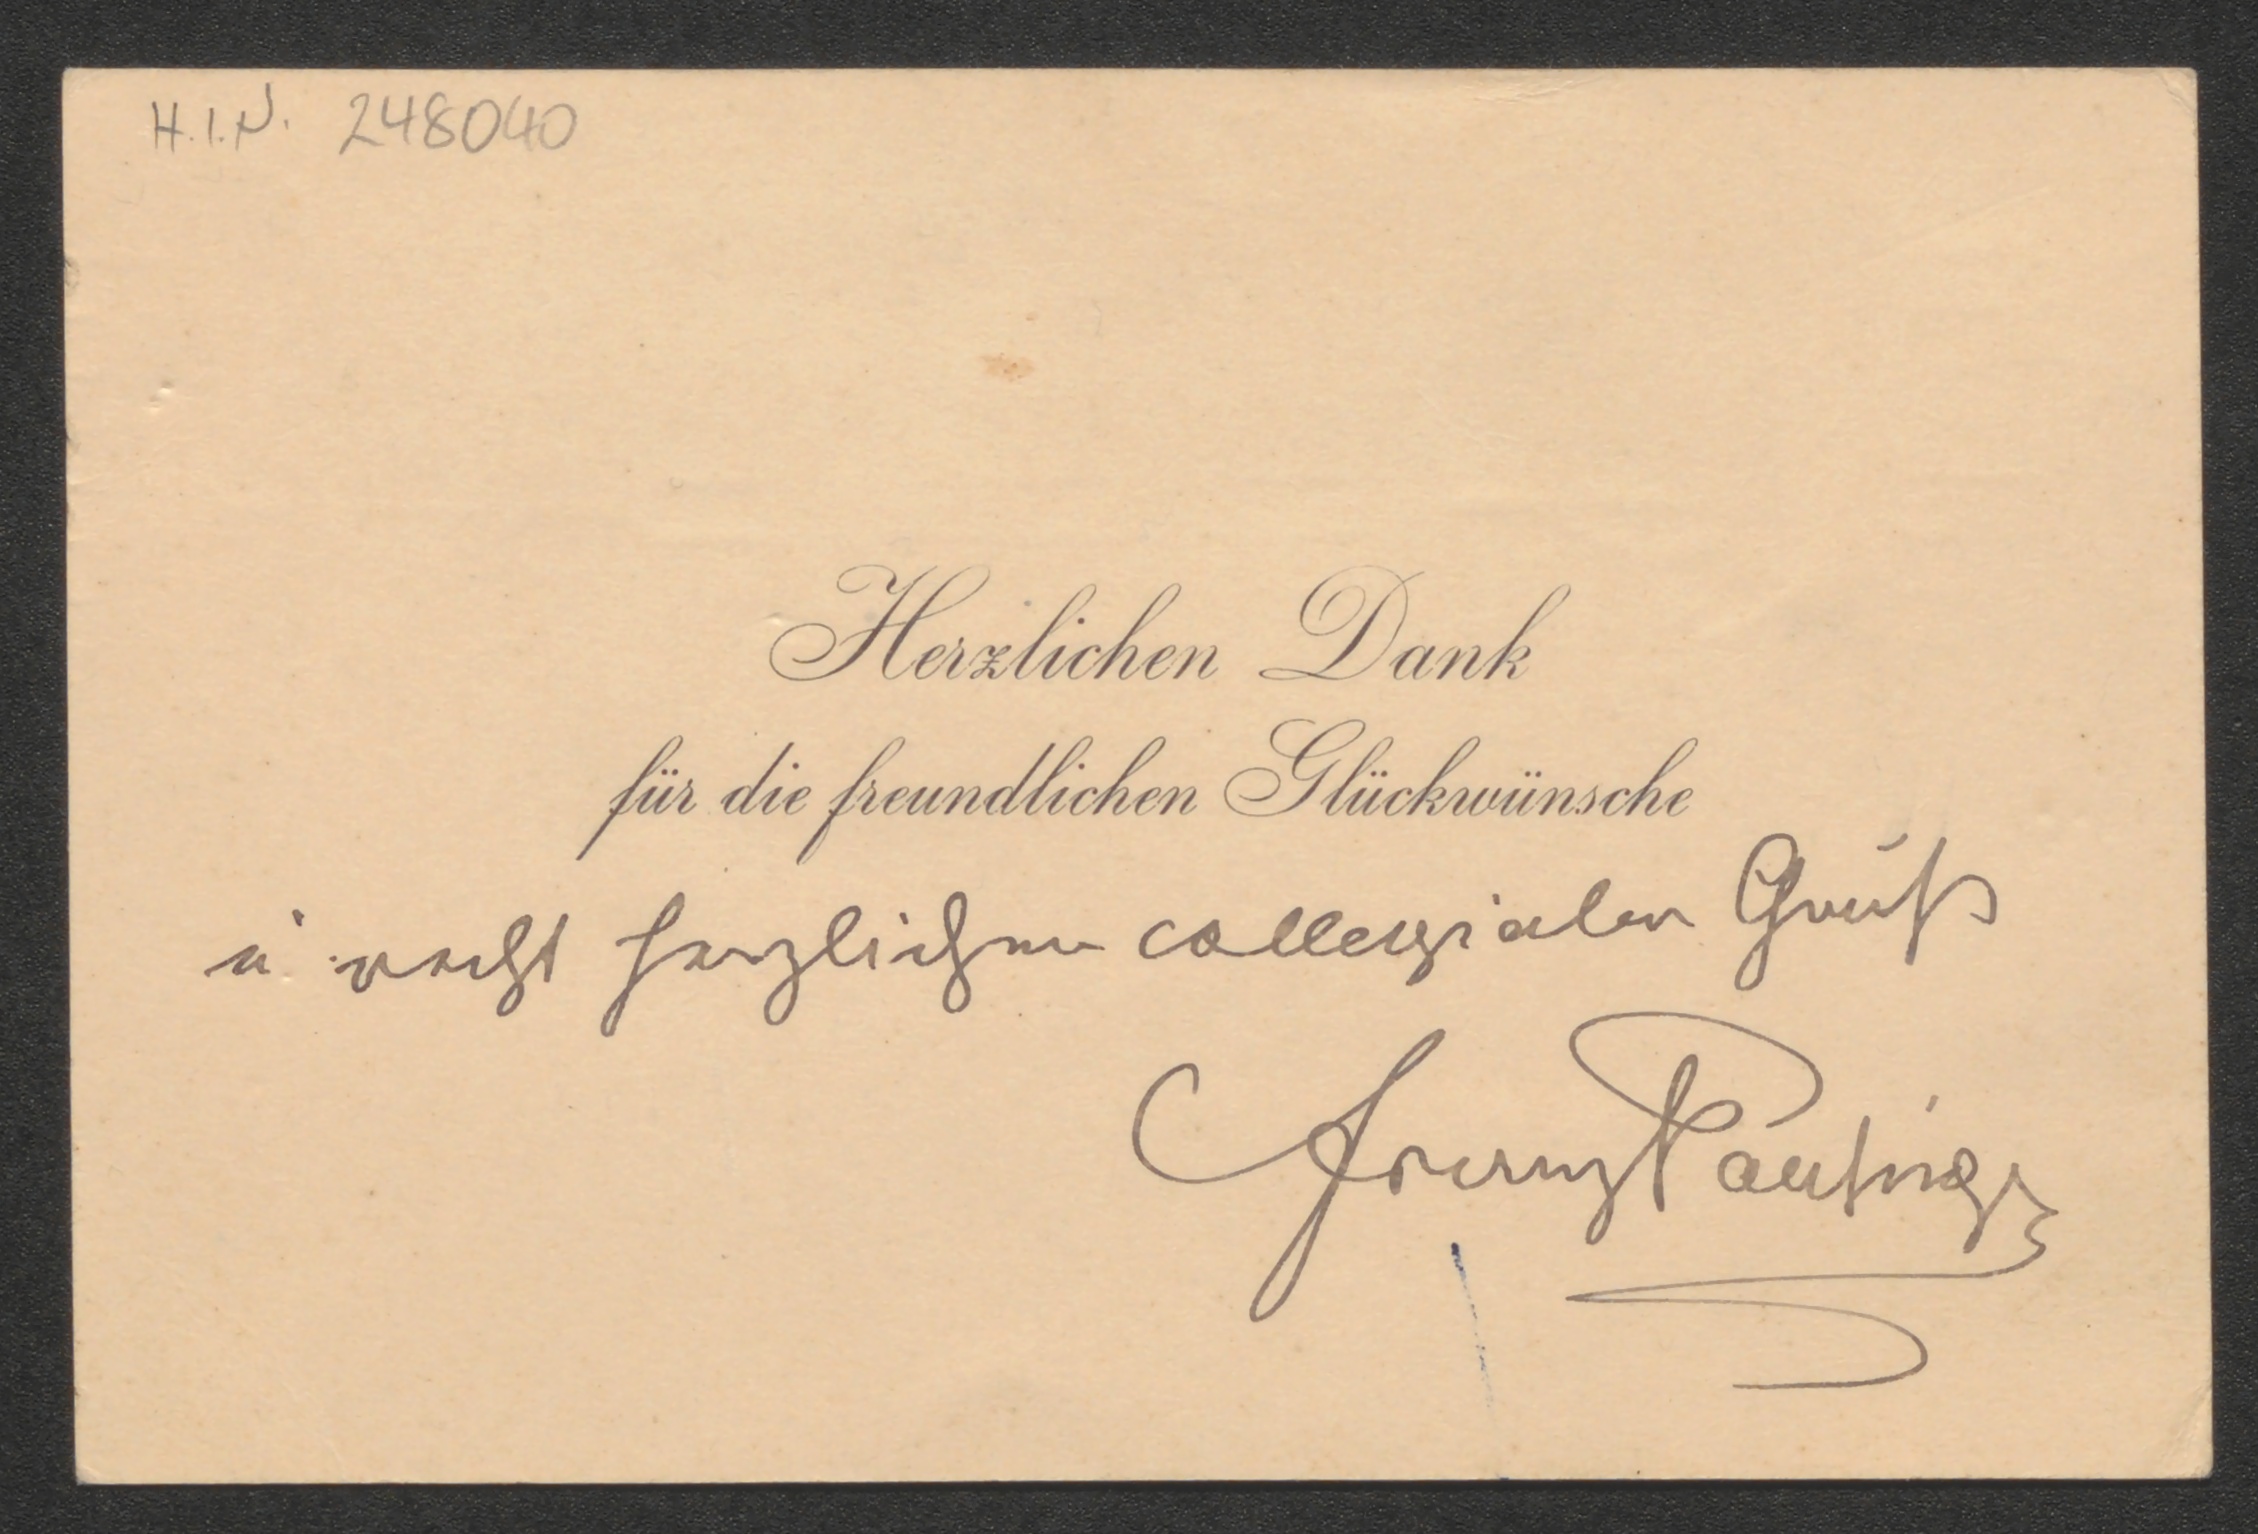 H.I.N. 248040
Herzlichen Dank
für die freundlichen Glückwünsche
u recht herzlichen collegialen Gruß
Franz